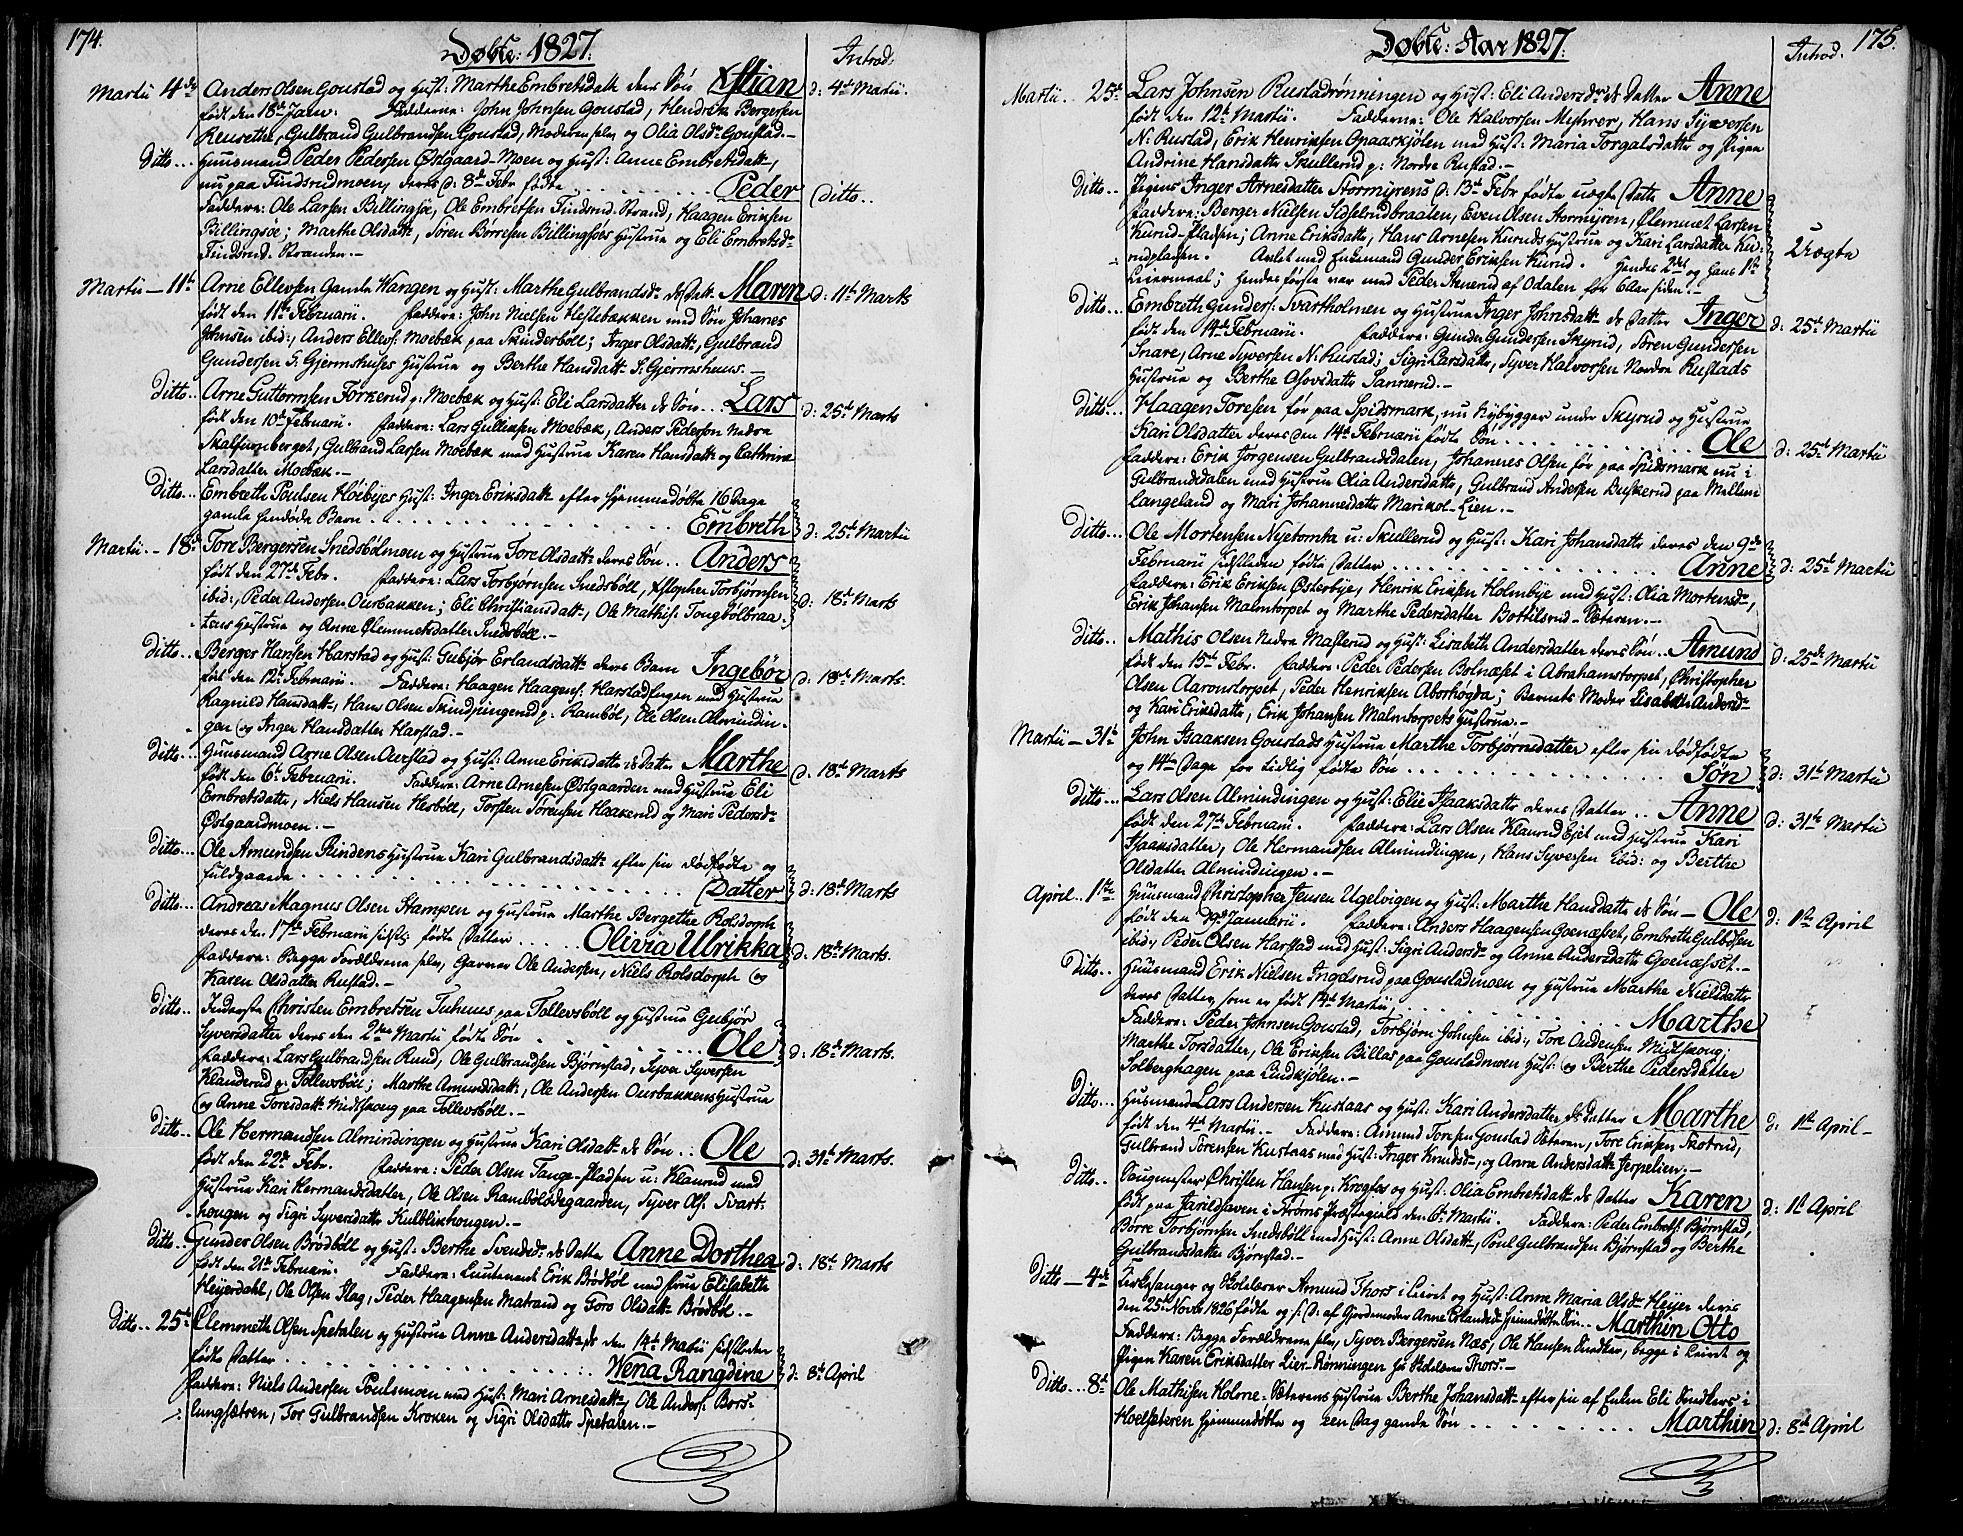 174.
Døbte: 1827.
Introd:
Martii 4de Anders Olsen Goustad og Hust: Marthe Embretsdatt deres Søn Xstian d: 4de Martii.
født den 18de Janr: Faddere: John Johnsen Goustad, Hendrik Bergersen
Reusethr, Gulbrand Gulbrandsen Goustad, Moderen selv og Olia Olsdr Goustad.-
Ditto... Huusmand Peder Pedersen Østgaard-Moen og Hust: Anne Embretsdatt-,
nu paa Findsrudmoen, deres d: 8de Febr fødte ......... Peder Ditto..
Faddere: Ole Larsen Billingsøe, Ole Embretsen Findsrud-Strand, Haagen Eriksen
Billingsøe; Marthe Olsdatt, Søren Børresen Billingsøes Hustrue og Eli Embretsd-
Findsrud-Stranden.-
Martii - 11te Arne Ellevsen Gamle Wangen og Hust: Marthe Gulbrandsdr ds Datt. Maren d: 11te Marts
født den 11te Februarii. Faddere: John Nielsen Hestebækken med Søn Johanes
Johnsen ibid:, Anders Ellevs: Moebæk paa Skinderböll; Inger Olsdatt-, Gulbrand
Gundersen S. Gjermshuses Hustrue og Berthe Hansdatt S. Gjermshuus.-
Ditto.. Arne Guttormsen Forkerud p: Moebæk og Hust: Eli Larsdatter ds Søn... Lars d: 25de Marts
født den 10de Februarii. Faddere: Lars Gulliksen Moebæk, Anders Pedersen Nedre
Skalfurnberget, Gulbrand Larsen Moebæk med Hustrue Karen Hansdatt og Cathrine
Larsdatter Moebæk.-
Ditto... Embreth Poulsen Høiebyes Hust: Inger Eriksdatt efter hjemmedøbte 16 Dage
gamle hensøde Barn ............ Embreth d: 25de Martii
Martii.- 18de Tore Bergersen Snedsbölmoen og Hustrue Tore Olsdatt deres Søn.. Anders
født den 27de Febr. Faddere: Lars Torbjørnsen Snedsböll, Xstopher Torbjørnsen d: 18de Marts
ibid:, Peder Andersen Ourbakken; Eli Christiansdatt-, Ole Mathis: Tougbölbraa-
tens Hustrue og Anne Clemmetsdatter Snedsböll.-
Ditto.. Berger Hansen Harstad og Hust: Gubjør Erlandsdatt- deres Barn Ingebör d: 18de Marts.
født den 12te Februarii. Faddere: Haagen Haagens: Harstadengen med Hustrue
Ragnild Hansdatt-, Hans Olsen Skindpingerud p: Ramböl, Ole Olsen Almindin-
gen og Inger Hansdatter Harstad.-
Ditto.. Huusmand Arne Olsen Overstad og Hust: Anne Eriksdatt ds Datter Marthe d: 18de Marts
født den 6te Februarii. Faddere: Arne Arnesen Østgaarden med Hustrue Eli
Embretsdatter, Niels Hansen Hesböll, Torsten Sörensen Haakerud og Mari Pedersdr
Østgaardmoen.-
Ditto.. Ole Amundsen Rindens Hustrue Kari Gulbrandsdatt- efter sin dødfødte og
fuldgaaede ............ Datter d: 18de Marts
Ditto.. Andreas Magnus Olsen Stampen og Hustrue Marthe Bergette Rolsdorph
deres den 17de Februarii sidstl: fødte Datter ..... Olivia Ulrikka d: 18de Marts.
Faddere: Begge Forældrene selv, Garver Ole Andersen, Niels Rolsdorph og
Karen Olsdatter Rustad.-
Ditto.. Inderste Christen Embretsen Tuhuus paa Tollevsböll og Hustrue Gubjør
Syversdatter deres den 2den Martii fødte Søn ......... Ole d: 18de Marts.
Faddere: Lars Gulbrandsen Ruud, Ole Gulbrandsen Bjørnstad, Syver Syversen
Klanderud p: Tollevsböll; Marthe Amundsdatt:, Ole Andersen Ourbakkens Hustrue
og Anne Toresdatt- Midtskoug paa Tollevsböll.-
Ditto.. Ole Hermandsen Almindingen og Hustrue Kari Olsdatt- ds Søn.. Ole d: 31te Marts.
født den 22de Febr. Faddere: Peder Olsen Tange-Pladsen u: Klanrud med
Hustrue Kari Hermandsdatter, Ole Olsen Rambölödegaarden, Syver Ols: Svart-
hougen og Sigri Syversdatt- Kulblikhougen.-
Ditto.. Gunder Olsen Brödböll og Hust: Berthe Svendsdr ds Datter Anne Dorthea d: 18de Marts
født den 21de Februarii. Faddere: Lieutenant Erik Brödböl med Frue Elisabeth
Heyerdahl, Ole Olsen Flag, Peder Haagensen Matrand og Goro Olsdatt- Brödböl.-
Ditto.. 25de Clemmeth Olsen Spetalen og Hustrue Anne Andersdatt ds den 14de Martii sidstleden
fødte Datter ............ Wena Rangdine d: 8de April
Faddere: Niels Andersen Poulsmoen med Hust: Mari Arnesdatt-, Ole Anders: Bors-
lungsætren, Tor Gulbrandsen Kroken og Sigri Olsdatter Spetalen.-
Døbte: Aar 1827.
Introd.
175.
Martii.. 25de Lars Johnsen Rustadrønningen og Hust: Eli Andersdr ds Datter Anne
født den 12te Martii. Faddere: Ole Halvorsen Myhrer, Hans Syversen
N. Rustad, Erik Henriksen Opaaskjölen med Hust: Maria Torgalsdatter og Pigen
Andrine Hansdatter Skullerud p: Nordre Rustad.-
Ditto... Pigens Inger Arnesdatter Stormyrens d: 13de Febr fødte uægte Datter Anne
Faddere: Berger Nielsen Sidselrudbraaten, Even Olsen Stormyren, Clemmet Larsen
Kurud-Pladsen; Anne Eriksdatter, Hans Arnesen Kuruds Hustrue og Kari Larsdatter Ku-
rudpladsen. Avlet med Enkemand Gunder Eriksen Kurud. Hendes 2det og hans 1ste Uægte
Leiermaal; hendes første var med Peder Stuerud af Odalen for 6 Aar siden.-
Ditto... Embreth Gunders: Svartholmen og Hustrue Inger Johnsdatt- ds Datter Inger d: 25de Martii
født den 14de Februarii. Faddere: Gunder Gundersen Skyrud, Sören Gundersen
Snare, Arne Syversen N. Rustad; Sigri Larsdatter, Syver Halvorsen Nordre Rustads
Hustrue og Berthe Osvesdatter Sannerud.-
Ditto... Haagen Toresen før paa Spidsmark, nu Nybygger under Skyrud og Hustrue
Kari Olsdatter deres den 14de Februarii fødte Søn ......... Ole d: 25de Martii
Faddere: Erik Jørgensen Gulbrandsdalen, Johannes Olsen før paa Spidsmark nu i
Gulbrandsdalen med Hustrue Olia Andersdatter, Gulbrand Andersen Buskerud paa Mellem
Langeland og Mari Johannesdatter Marikol-Lien.-
Ditto... Ole Mortensen Nyetomta u: Skullerud og Hust: Kari Johansdatter deres den 9de
Februarii sidstleden fødte Datter ............ Anne d: 25de Martii
Faddere: Erik Eriksen Østerbye, Henrik Eriksen Holmbye med Hust: Olia Mortensd-,
Erik Johansen Malmtorpet og Marthe Pedersdatter Bottilsrud-Sæteren.-
Ditto... Mathis Olsen Nedre Masterud og Hust: Lisabeth Andersdatter deres Søn.. Amund d: 25de Martii
født den 15de Febr. Faddere: Peder Pedersen Bolnæset i Abrahamstorpet, Christopher
Olsen Aaronstorpet, Peder Henriksen Aborhøgda; Barnets Moder Lisabeth Andersd-
og Kari Eriksdatter, Erik Johansen Malmtorpets Hustrue.-
Martii - 31te John Isaaksen Goustads Hustrue Marthe Torbjørnsdatter efter sin dødfødte
og 14ten Dage for tidlig fødte Søn ............ Søn d: 31te Martii
Ditto... Lars Olsen Almindingen og Hust: Elie Isaaksdatter deres Datter.. Anne d: 31te Martii
født den 27de Februarii. Faddere: Lars Olsen Klanrud Eyet med Hustrue Kari
Isaaksdatter, Ole Hermandsen Almindingen, Hans Syversen ibid: og Berthe
Olsdatter Almindingen.-
April.. 1ste Huusmand Christopher Jensen Ugelvigen og Hust: Marthe Hansdatter ds Søn - Ole d: 1ste April
født den 29de Januarii. Faddere: Anders Haagensen Goenæsset, Embreth Gulbdsen
ibid:, Peder Olsen Harstad med Hust: Sigri Andersd- og Anne Andersdatter Goenæsset.-
Ditto.. Huusmand Erik Nielsen Ingelsrud paa Goustadmoen og Hustrue Marthe Nielsdatter
deres Datter, som er født 14de Martii ............ Marthe
Faddere: Peder Johnsen Goustad, Torbjørn Johnsen ibid:, Tore Audensen Midtskoug,
Marthe Torsdatter, Ole Eriksen Billas paa Goustadmoen Hust: og Berthe Pedersdatter
Solberghagen paa Lindkjølen.-
Ditto... Husmand Lars Andersen Kustaas og Hust: Kari Andersdatter ds Datter Marthe d: 1ste April-
født den 4de Martii.- Faddere: Amund Toresen Goustad Sæteren, Tore Eriksen Skotrud,
Gulbrand Sörensen Kustaas med Hust: Inger Knudsd-, og Anne Andersdatt- Jerpelien.-
Ditto.. Saugmester Christen Hansen p: Krogfos og Hust: Olia Embretsdatt- ds Datter Karen d: 1ste April
født paa Jarildhaven i Strøms Præstegield den 6te Martii. Faddere: Peder Embrets: Bjørnstad,
Børre Torbjørnsen Snedsböll med Hust: Anne Olsdatt-, Poul Gulbrandsen Bjørnstad og Berthe
Gulbrandsdatter Bjørnstad.-
Ditto - 4de Kirkesanger og Skolelærer Amund Thors i Leiret og Hust: Anne Maria Olsdr Heyer deres
den 25de Novbr 1826 fødte og s: D: af Gjordemoder Anne Erlandsd hjemmedøbte Søn.. Marthin Otto
Faddere: Begge Forældrene selv, Syver Bergersen Næs, Ole Hansen Snedker, begge i Leiret og
Pigen Karen Eriksdatter Lier-Rønningen hos Skolelærer Thors.-
Ditto... 8de Ole Mathisen Holme-Sæterens Hustrue Berthe Johansdatt- efter sin af Enken Eli Snedkers i
Hoelsæteren hjemmedøbte og een Dag gamle Søn ......... Marthin d: 8de April